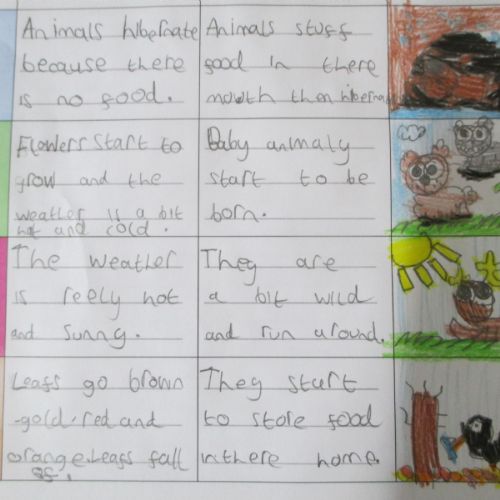 Animals hibernate
because there
is no food.
Animals stuff
food in there
mouth then hibernate
Flowers start to
grow and the
weather is a bit
hot and cold.
Baby animaly
start to be
born.
The weather
is reely hot
and sunny.
They are
a bit wild
and run around.
Leafs go brown
-gold.red and
orange.Leafs fall
off.
They start
to store food
in there home.